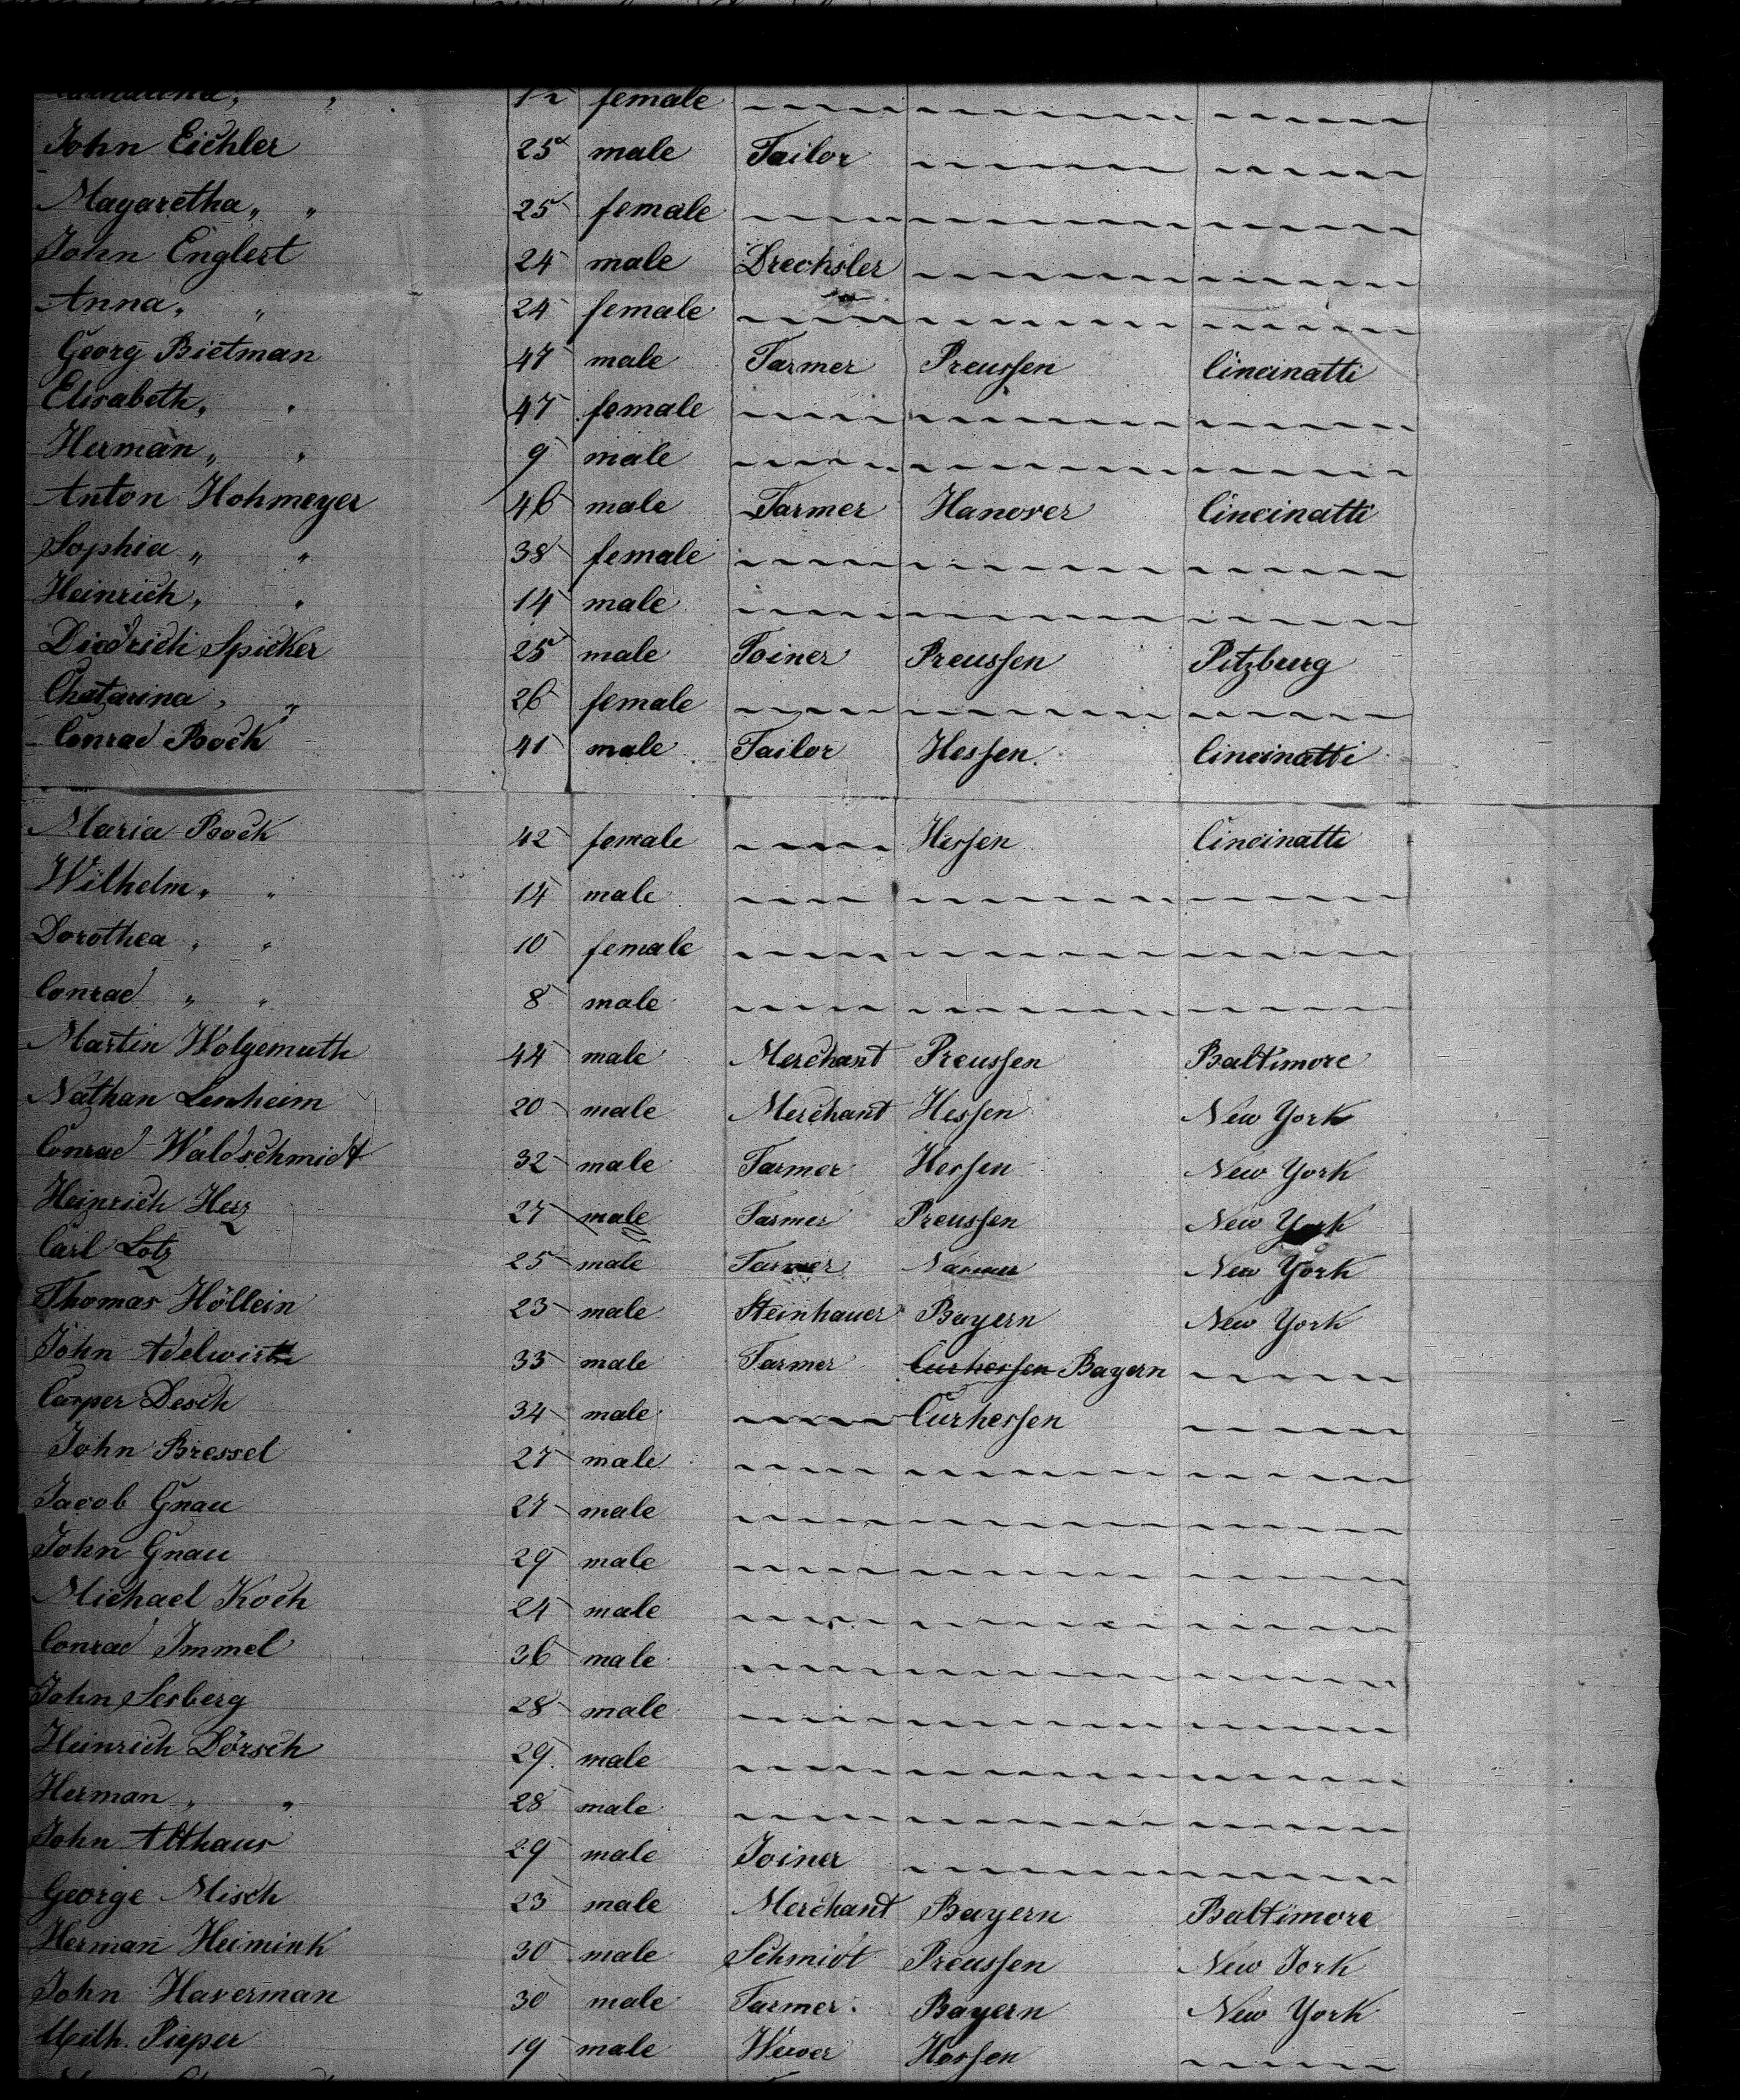 female
John Eichler 25 male Tailor
Magaretha " " 25 female
John Englert 24 male Drechsler
Anna " " 24 female
Georg Bietman 47 male Farmer Preussen Cincinatti
Elisabeth " " 47 female
Herman " " 9 male
Anton Hohmeyer 46 male Farmer Hanover Cincinatti
Sophia " " 38 female
Heinrich " " 14 male
Diedrich Spicker 25 male Joiner Preussen Pitzburg
Chatarina " " 26 female
Conrad Bock 41 male Tailor Hessen Cincinatti
Maria Bock 42 female Hessen Cincinatti
Wilhelm " " 14 male
Dorothea " " 10 female
Conrad " " 8 male
Martin Wolgemuth 44 male Merchant Preussen Baltimore
Nathan 20 male Merchant Hessen New York
Conrad Waldschmidt 32 male Farmer Hessen New York
Heinrich Herz 27 male Farmer Preussen New York
Carl Lotz 25 male Farmer New York
Thomas Höllein 23 male Steinhauer Bayern New York
John Adelwirth 33 male Farmer Curhessen Bayern
Casper Desch 34 male Curhessen
John Bressel 27 male
Jacob Gnau 27 male
John Gnau 29 male
Michael Koch 24 male
Conrad Immel 36 male
John Sesberg 28 male
Heinrich Dörsch 29 male
Herman " " 28 male
John Althaus 29 male Joiner
George Misch 23 male Merchant Bayern Baltimore
Herman Heimink 30 male Schmidt Preussen New York
John Haverman 30 male Farmer Bayern New York
Pieper 19 male Hessen